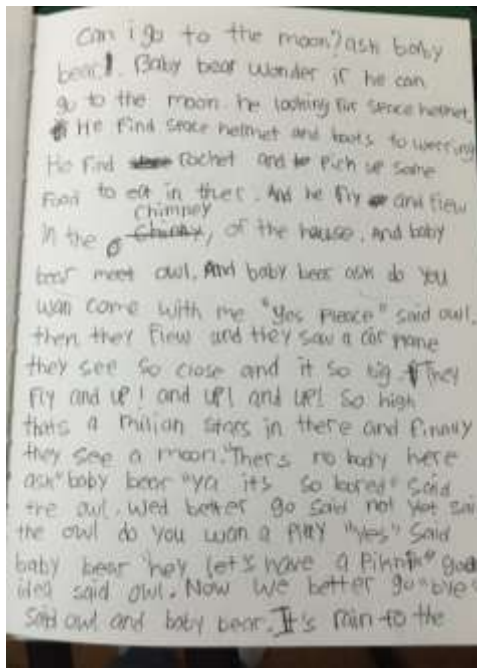 Can i go to the moon? ask baby
bear!. Baby bear wonder if he can
go to the moon. he looking for space helmet.
He find space helmet and boots to werring
He find rocket and pich up some
Food to eat in ther. And he fly and flew
in the Chimpey, of the hause. And baby
bear meet owl. And baby beer ask do you
wan come with me "yes please" said owl.
then they flew and they saw a
they see so close and it so big. They
Fly and up! and up! and up! So high
thats a milian stars in there and finaly
they see a moon. "Thers no body here
ask" baby bear "ya its so bored" said
the owl. wed better go said not yet sai
the owl do you wan a play "yes" said
baby bear "hey let's have a piknik" good
idea said owl. Now we better go "bye"
said owl and baby bear. It's rain to the